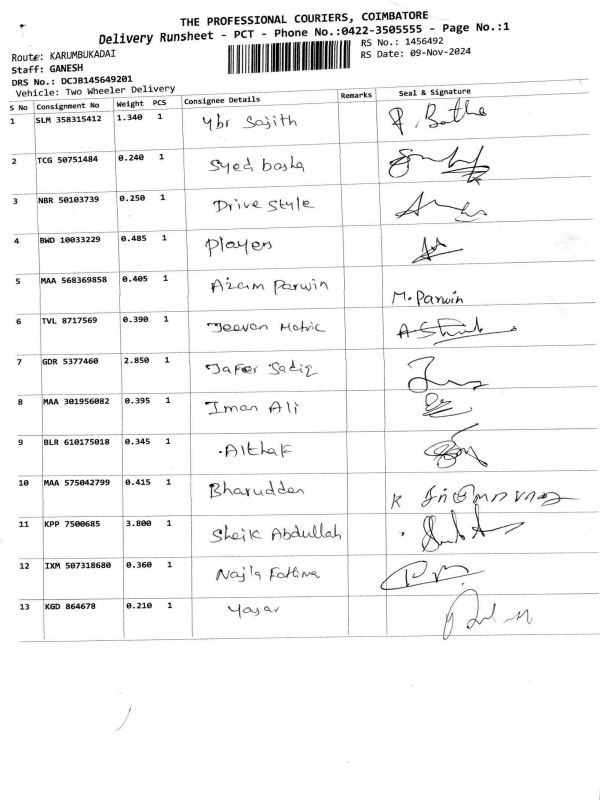 THE PROFESSIONAL COURIERS, COIMBATORE
Delivery Runsheet - PCT - Phone No.:0422-3505555 - Page No.:1
Route: KARUMBUKADAI
RS No.: 1456492
Staff: GANESH
RS Date: 09-Nov-2024
DRS No.: DCJB145649201
Vehicle: Two Wheeler Delivery
S No Consignment No Weight PCS Consignee Details Remarks Seal & Signature
1 SLM 358315412 1.340 1 Ybr Sajith
2 TCG 50751484 0.240 1 Syed basha
3 NBR 50103739 0.250 1 Drive Style
4 BWD 10033229 0.485 1 Players
5 MAA 568369858 0.405 1 Azam Parwin M. Parwin
6 TVL 8717569 0.390 1 Jeevan Matric
7 GDR 5377460 2.850 1 Jafer Sadiq
8 MAA 301956082 0.395 1 Iman Ali
9 BLR 610175018 0.345 1 Althaf
10 MAA 575042799 0.415 1 Bharudden K
11 KPP 7500685 3.800 1 Sheik Abdullah
12 IXM 507318680 0.360 1 Najla Fathima
13 KGD 864678 0.210 1 Yasar